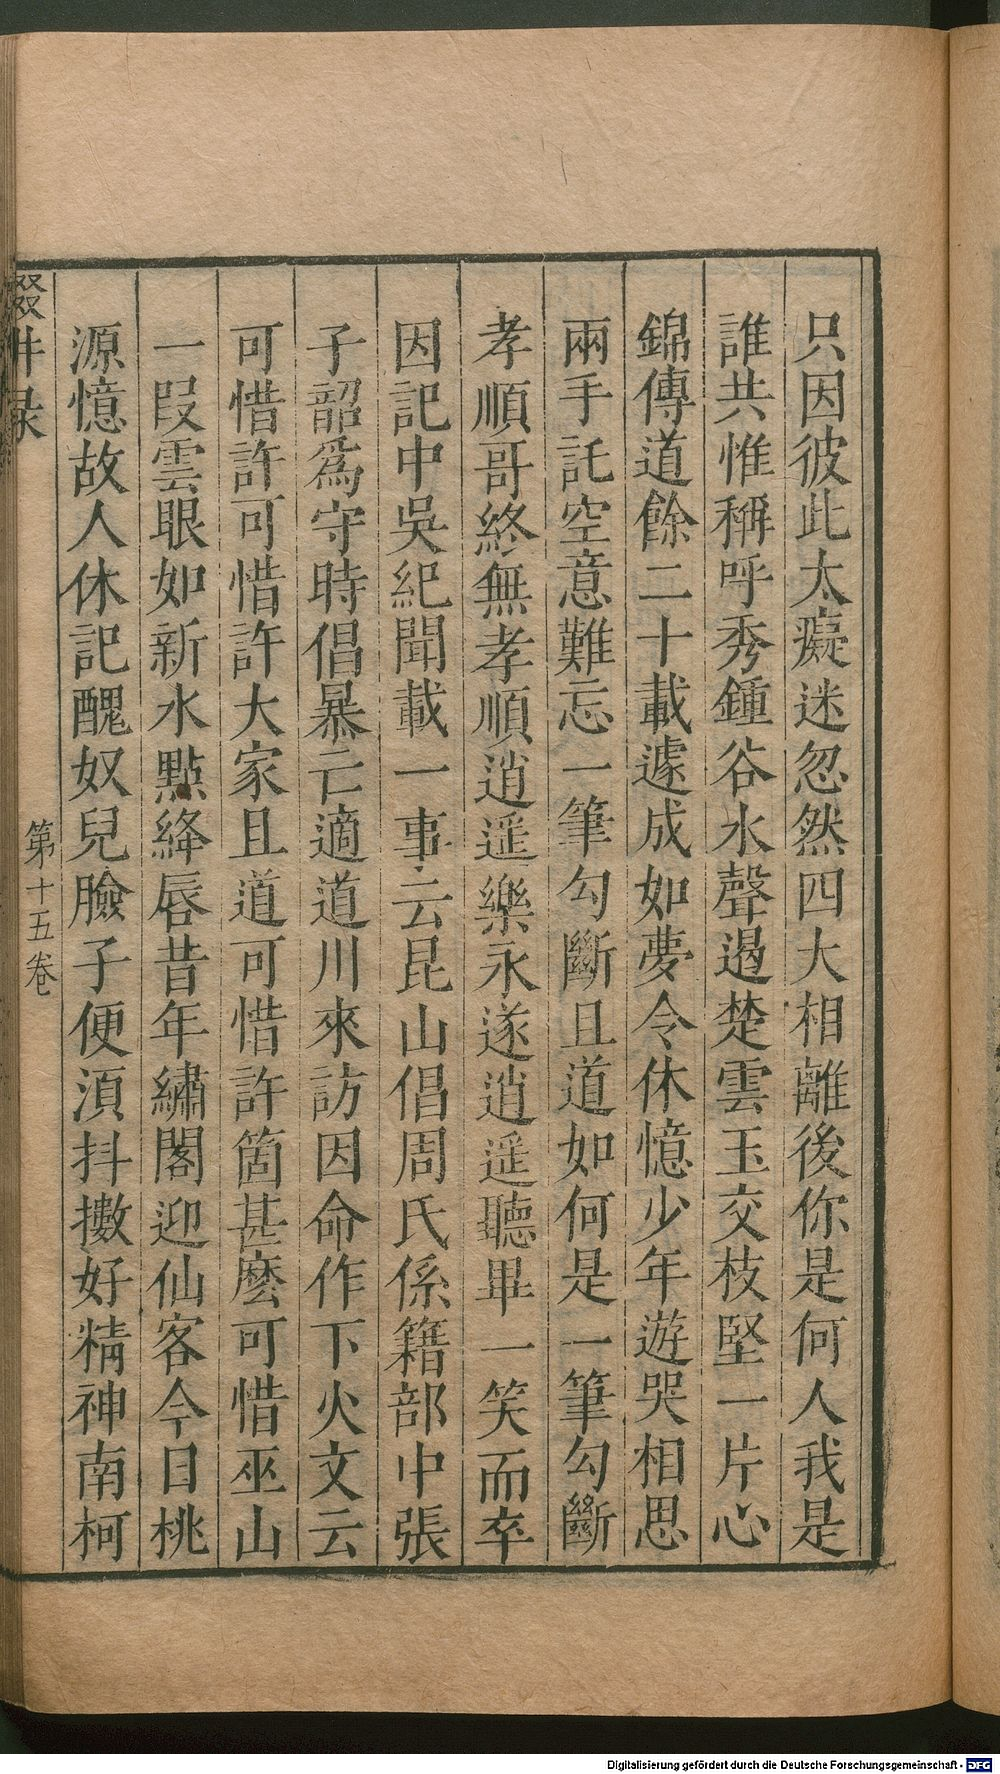 只因彼此太癡迷忽然四大相離後你是何人我是
誰共惟稱呼秀鍾谷水聲遏楚雲玉交枝堅一片心
錦傳道餘二十載遽成如夢令休憶少年遊哭相思
兩手託空意難忘一筆勾斷且道如何是一筆勾斷
孝順哥終無孝順逍遥樂永遂逍遥聽畢一笑而卒
因記中吳紀聞載一事云昆山倡周氏係籍部中張
子韶爲守時倡暴亡適道川來訪因命作下火文云
可惜許可惜許大家且道可惜許箇甚麽可惜巫山
一叚雲眼如新水點絳唇昔年繡閣迎仙客今日桃
源憶故人休記醜奴兒臉子便湏抖擻好精神南柯
第十五卷
Digitalisierung gefördert durch die Deutsche Forschungsgemeinschaft - DFG